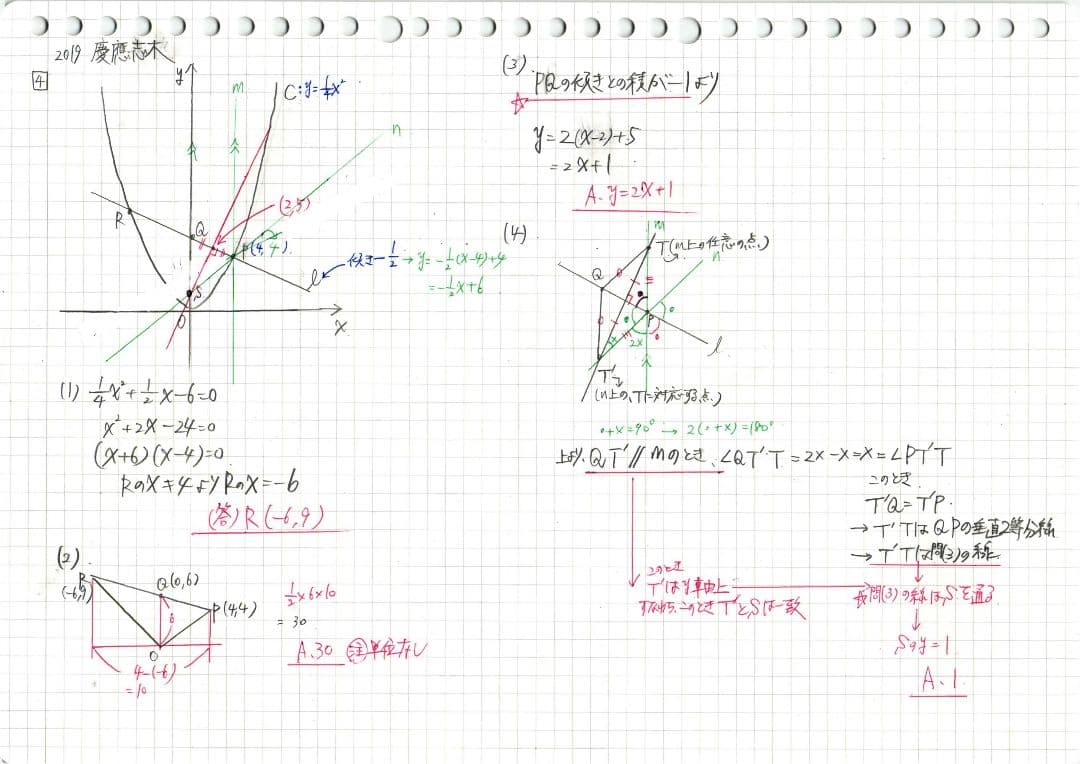 2019 慶應志木
4
y
m
C:y=1/4x²
n
(2,5)
R
Q
P(4,4)
l
傾き-1/2→y=-1/2(x-4)+4
=-1/2x+6
S
O
x
(1) 1/4x²+1/2x-6=0
x²+2x-24=0
(x+6)(x-4)=0
Rのx≠4よりRのx=-6
(答)R(-6,9)
(2)
R
(-6,9)
Q(0,6)
P(4,4)
6
O
4-(-6)
=10
1/2×6×10
=30
A.30 注単位なし
(3)
PQの傾きとの積が-1より
y=2(x-2)+5
=2x+1
A.y=2x+1
(4)
m
T(m上の任意の点。)
n
Q
P
x
2x
l
T'
(n上の、Tに対応する点。)
∘+x=90°→2(∘+x)=180°
上より、QT'//mのとき、∠QT'T=2x-x=x=∠PT'T
このとき
T'Q=T'P.
→T'TはQPの垂直2等分線
→T'Tは問(3)の線
このとき
T'はy軸上
すなわち、このときT'とSは一致
問(3)の線は、Sを通る
Sのy=1
A.1